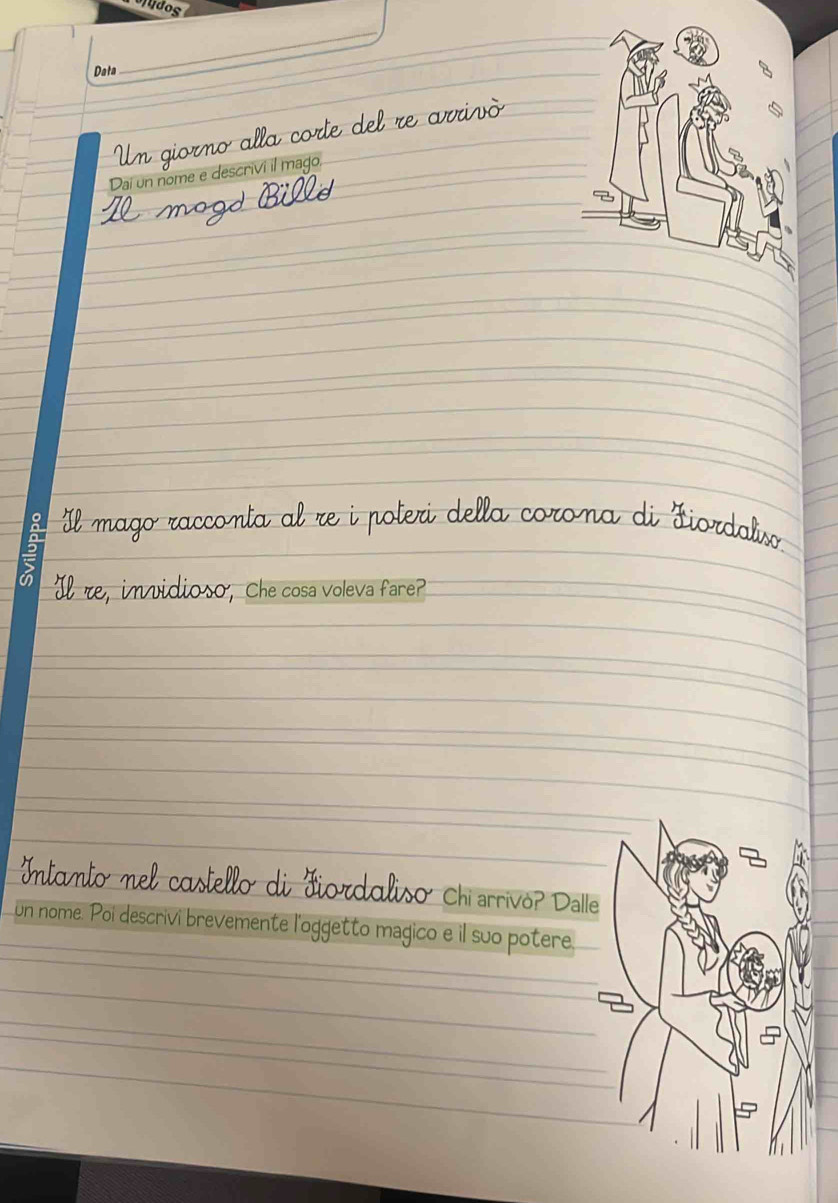 Data
Un giorno alla corte del re arrivò
Dai un nome e descrivi il mago.
Il mago Billo
Sviluppo
Il mago racconta al re i poteri della corona di Fiordaliso.
Il re, invidioso, Che cosa voleva fare?
Intanto nel castello di Fiordaliso Chi arrivò? Dalle
un nome. Poi descrivi brevemente l'oggetto magico e il suo potere.